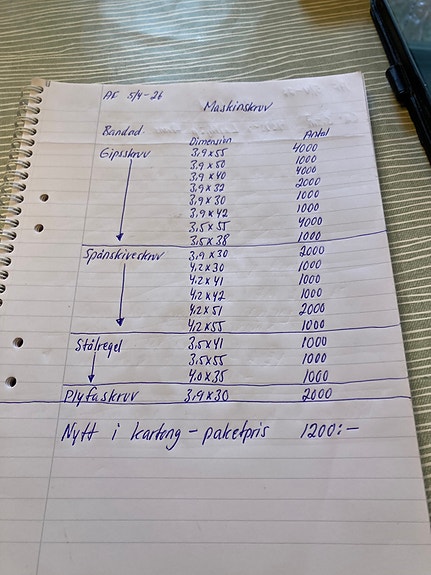 AF 5/4-26
Maskinskruv
Bandad Dimension Antal
Gipsskruv 3,9x55 4000
3,9x50 1000
3,9x40 4000
3,9x32 2000
3,9x30 1000
3,9x42 1000
3,5x55 4000
3,5x38 1000
Spånskiveskruv 3,9x30 2000
4,2x30 1000
4,2x41 1000
4,2x42 1000
4,2x51 2000
4,2x55 1000
Stålregel 3,5x41 1000
3,5x55 1000
4,0x35 1000
Plyfaskruv 3,9x30 2000
Nytt i kartong - paketpris 1200:-